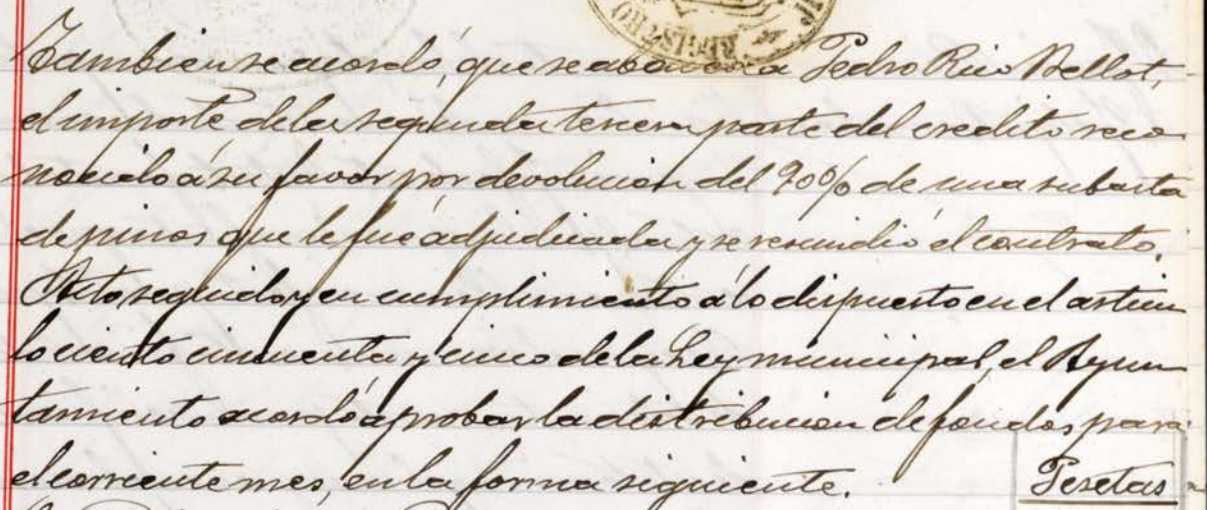 REGISTRO
Tambien se acordó, que se abone a Pedro Rico Bellot,
el importe de la segunda tercera parte del credito reco
nocido á su favor por devolucion del 90% de una subasta
de pinos que le fué adjudicada y se rescindió el contrato.
Acto seguido y en cumplimiento á lo dispuesto en el artícu
lo ciento cincuenta y cinco de la Ley municipal, el Ayun
tamiento acordó aprobar la distribucion de fondos para
el corriente mes, en la forma siguiente.
Pesetas